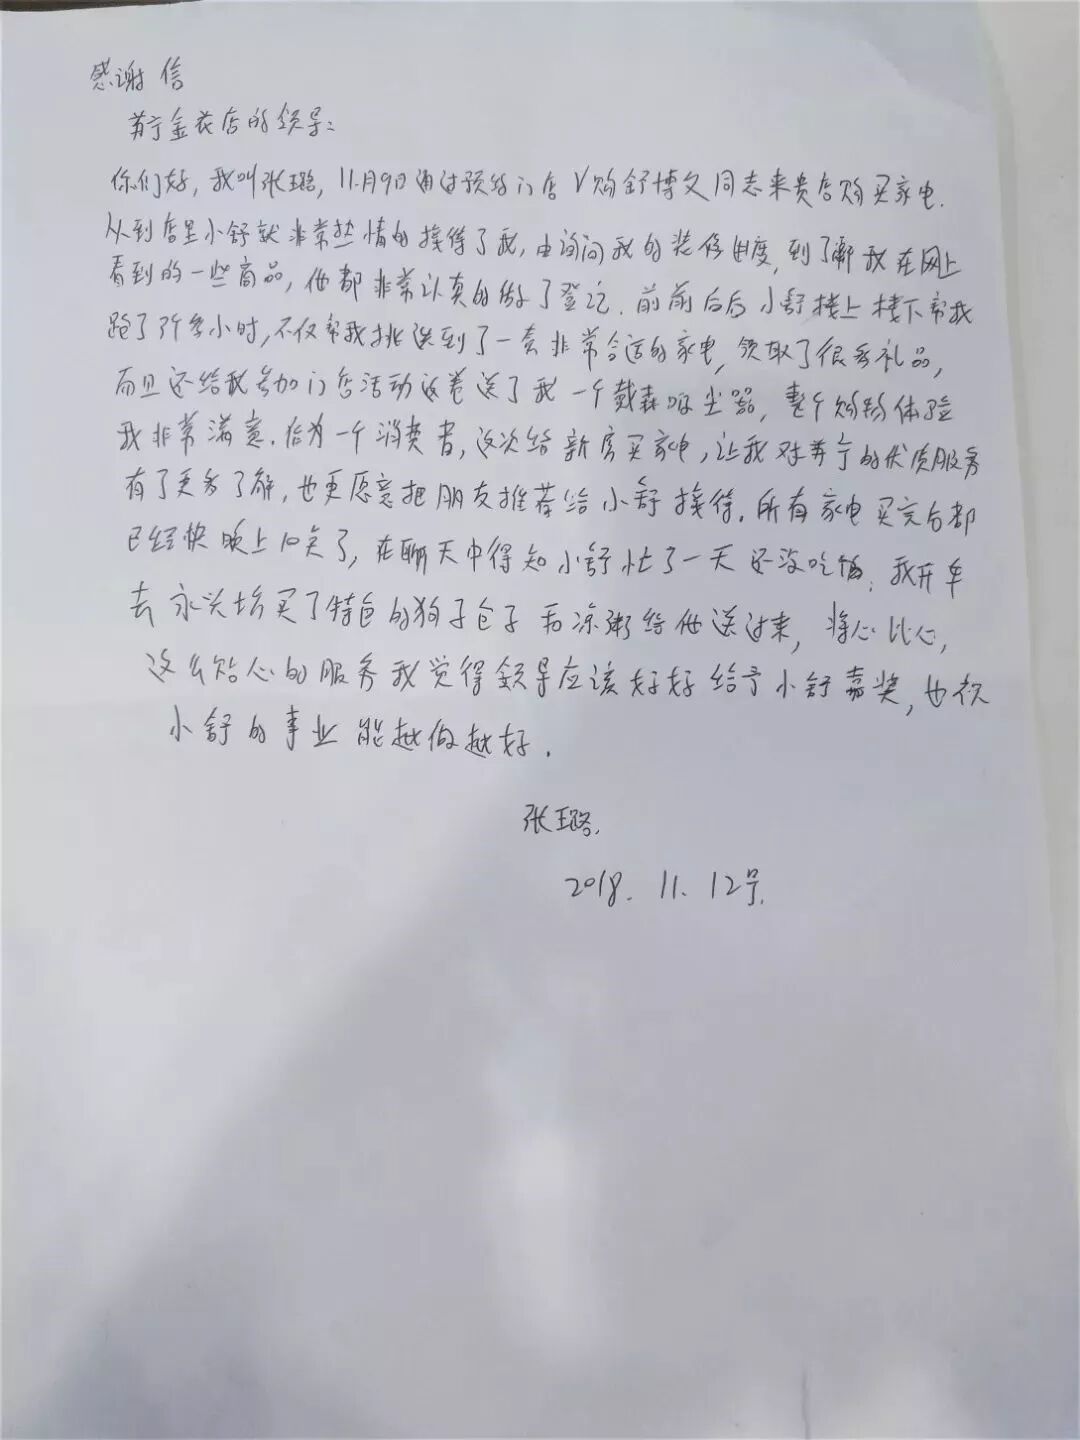 感谢信
苏宁金花店的领导:
你们好,我叫张璐,11月9日通过预约门店V购舒博文同志来贵店购买家电.
从到店里小舒就非常热情的接待了我,由询问我的装修进度,到了解我在网上
看到的一些商品,他都非常认真的做了登记.前前后后小舒楼上楼下帮我
跑了3个多小时,不仅帮我挑选到了一套非常合适的家电,领取了很多礼品,
而且还给我参加门店活动返卷送了我一个戴森吸尘器,整个购物体验
我非常满意.作为一个消费者,这次给新房买家电,让我对苏宁的优质服务
有了更多了解,也更愿意把朋友推荐给小舒接待.所有家电买完后都
已经快晚上10点了,在聊天中得知小舒忙了一天还没吃饭,我开车
去永兴坊买了特色的狗子包子和凉粥给他送过来,将心比心,
这么贴心的服务我觉得领导应该好好给予小舒嘉奖,也祝
小舒的事业能越做越好.
张璐.
2018.11.12号.